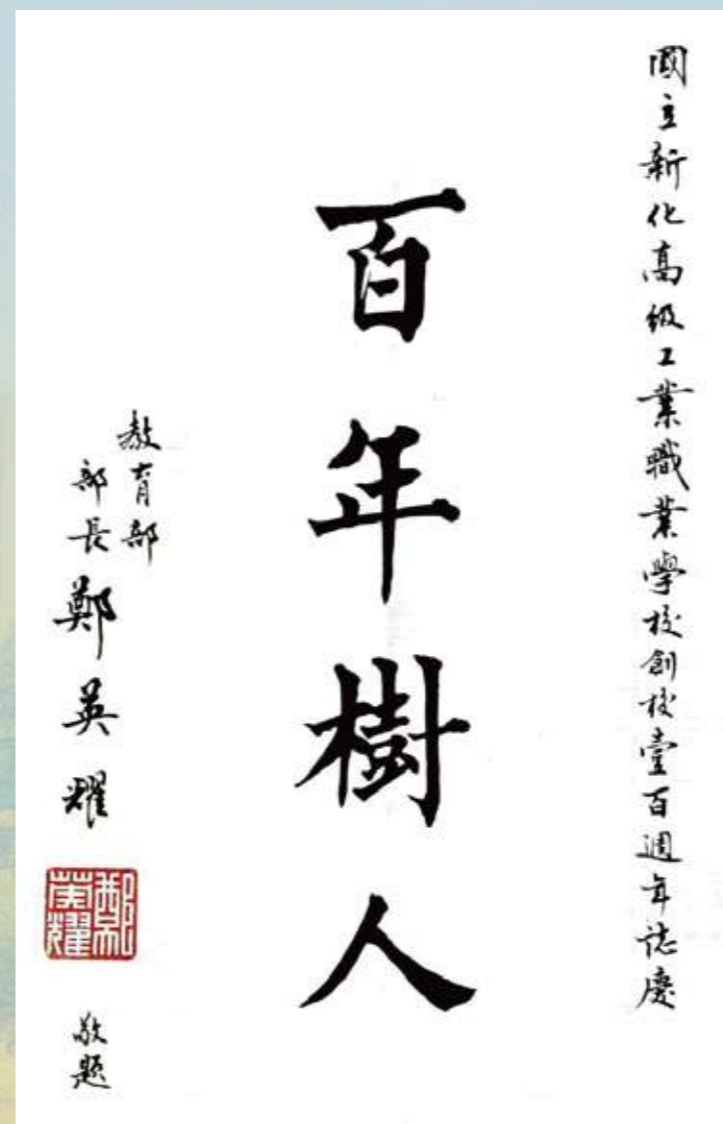 國立新化高級工業職業學校創校壹百週年誌慶
百年樹人
教育部
部長 鄭英耀
鄭英耀
敬題